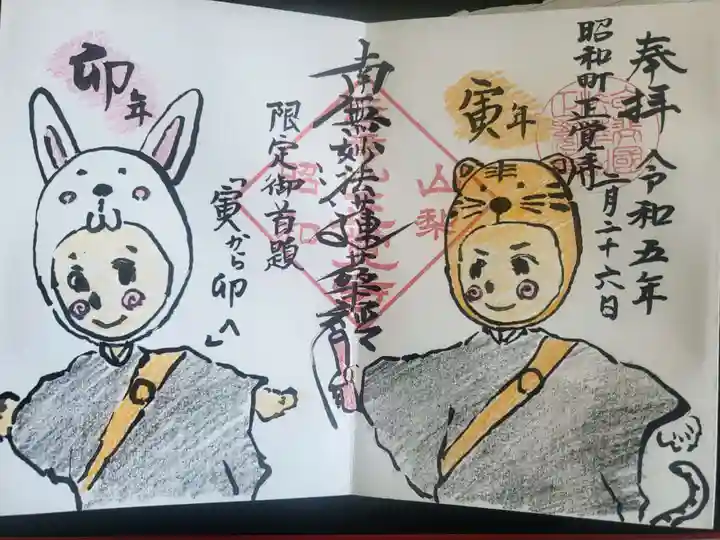 奉拝
令和五年
二月二十六日
昭和町正覚寺
寅年
山梨
南無妙法蓮華経
昭和
限定御首題
「寅から卯へ」
卯年